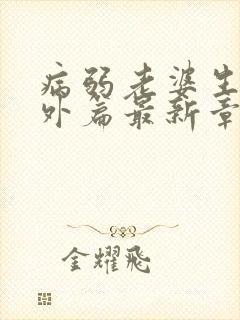 病弱老婆生
外篇最新章
金耀飛